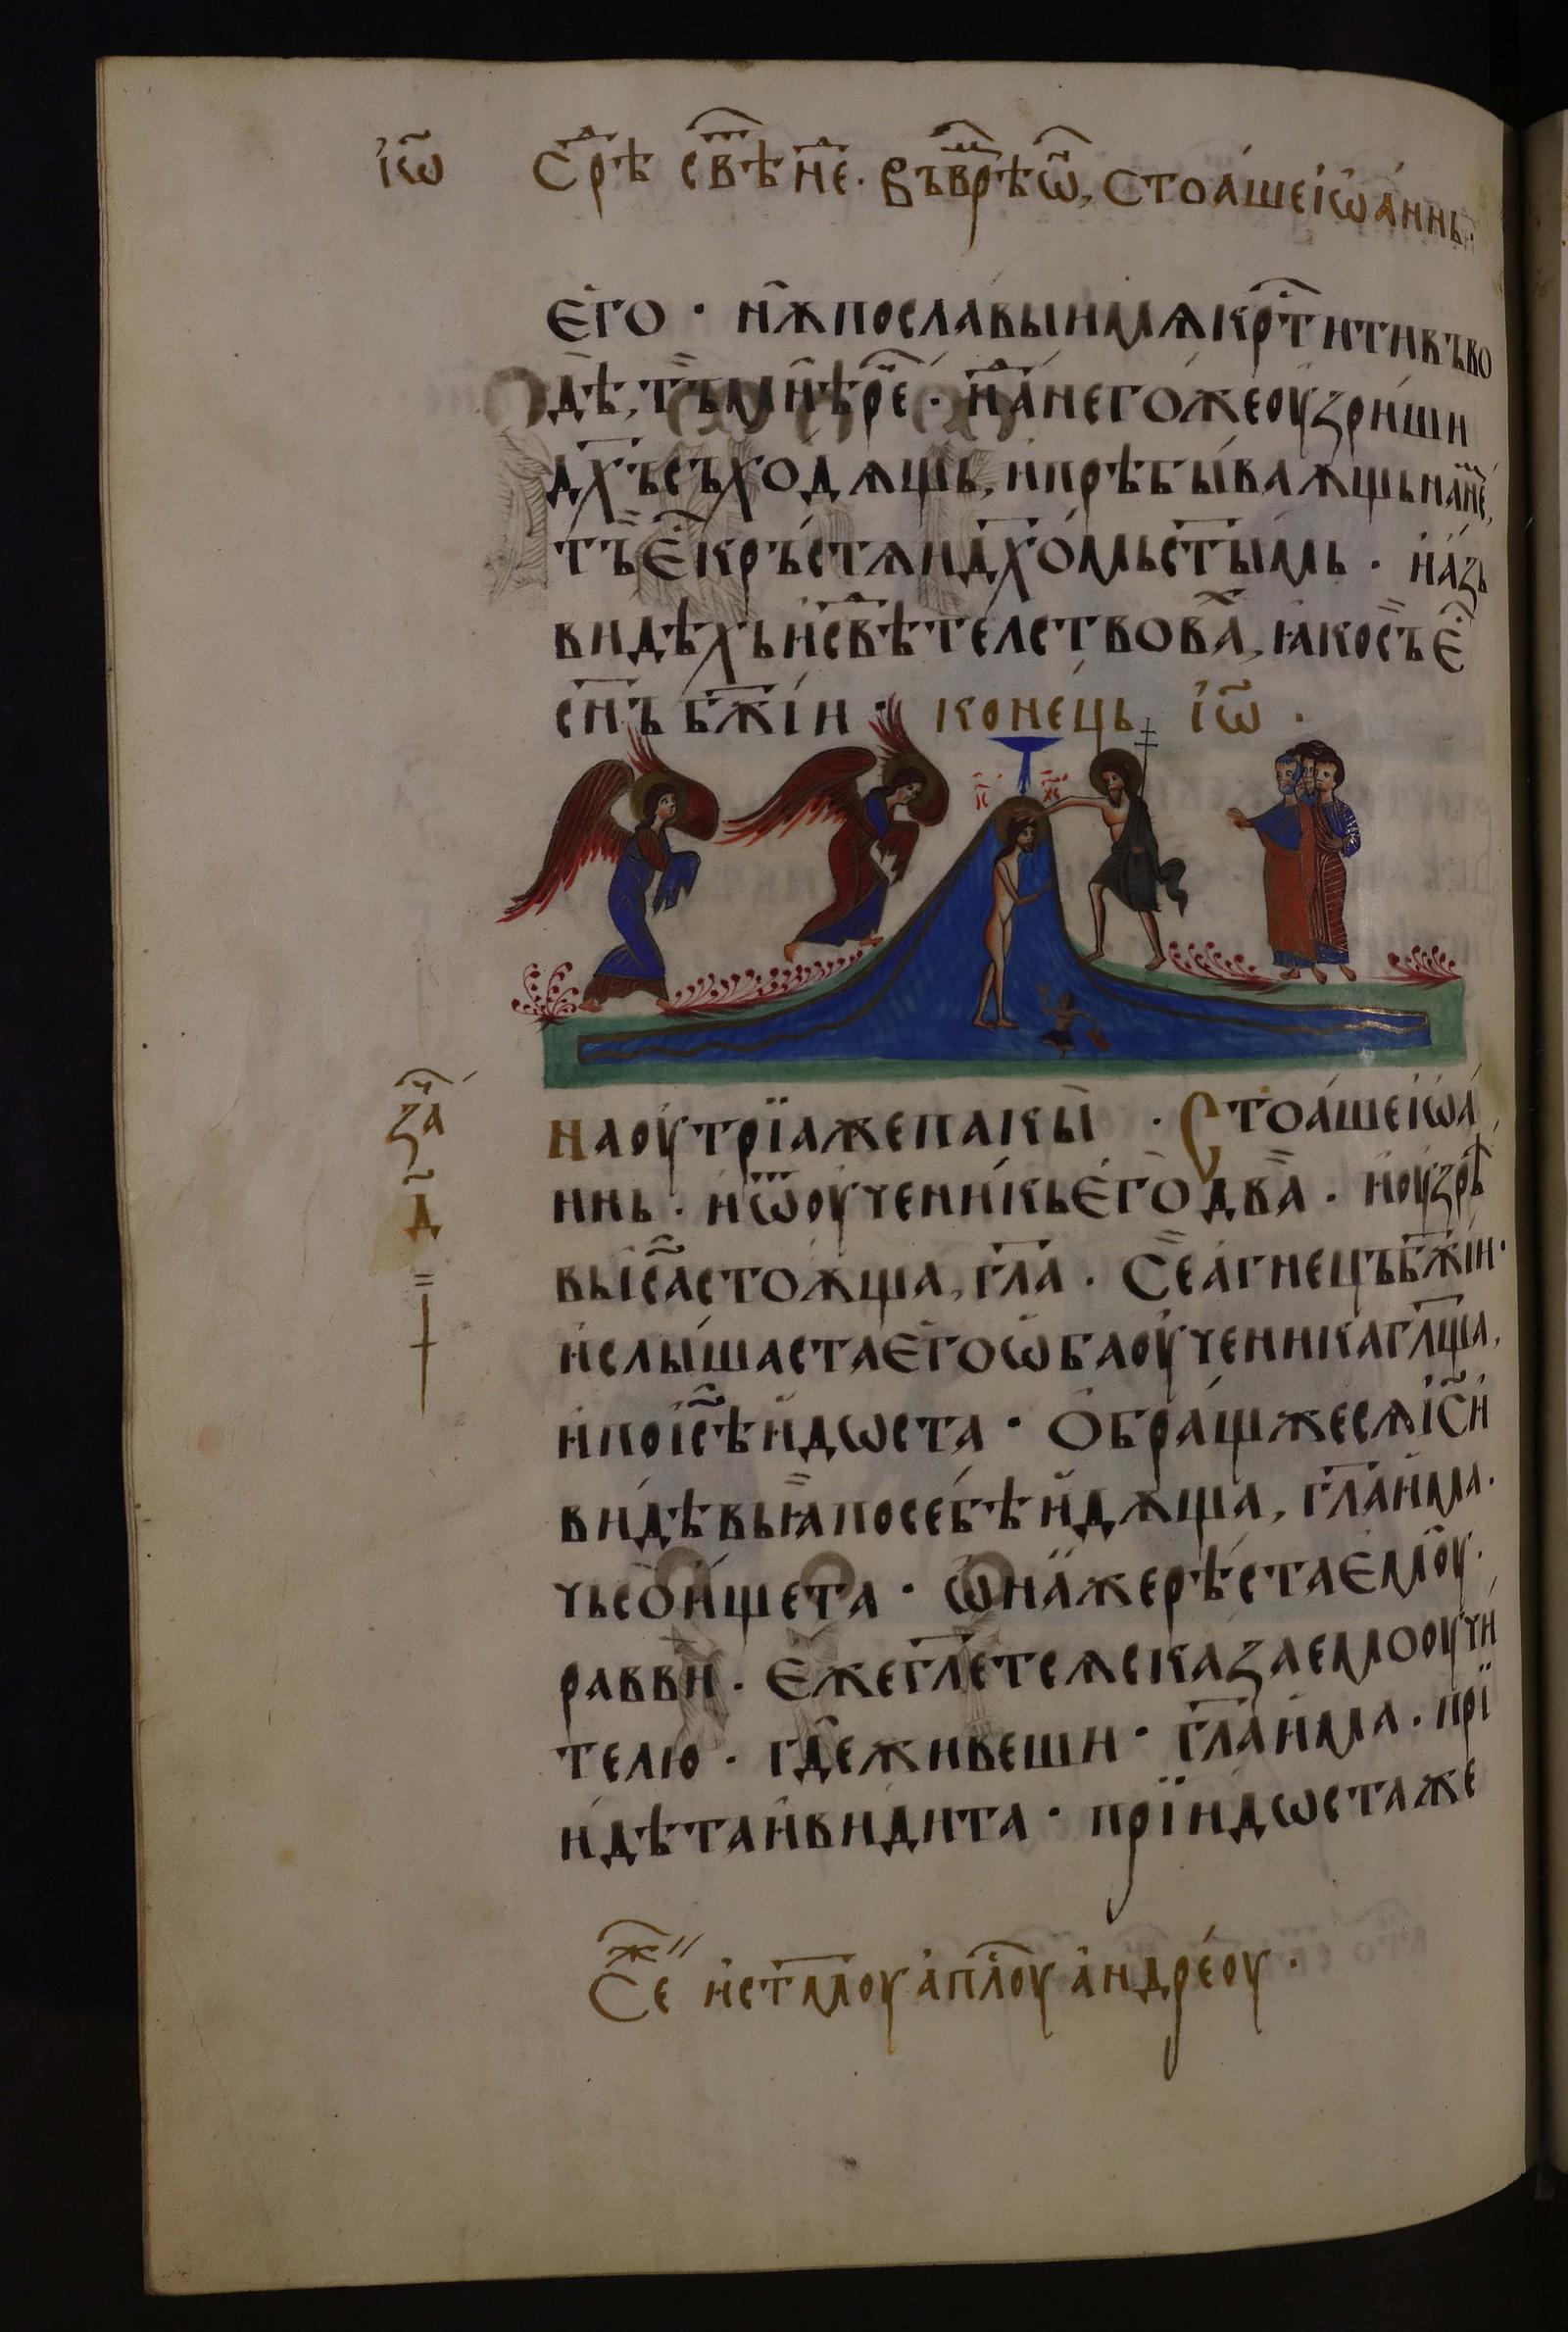 і҆ѡ҃ Срⷣѣ свⷮѣ нⷣе. Въврⷨѣѡ҃, Стоа́шеіѡ҆а́ннь.
Є҆го · нѫ҆пославыимѧкрⷭ҇титивъво
дѣ, тъмн҆ѣрⷱ҇е · нⷣанегоже оу҆зриши
дх҃ъсъходѧщь, и҆прѣбы́ваѫщьнаⷩ҇е,
тъⷷ Є҆крьстѧидх҃о́мьст҃ымь · и҆а́зь
видѣхьи҆свⷣѣтелствоваⷯ, ꙗкосъ Є҆ⷭ
сн҃ъ бж҃їи · коне́ць і҆ѡ҃ ·
і҃с х҃с
заⷱ҇
д҃
На оу҆трїаже пакы · Стоа́шеіѡ҆а́
ннь · и҆ѿоу҆чени́кьє҆го два · и҆оу҆зрѣ
выі҆с҃астоѫ́ща, гл҃а · Се а҆гнець бж҃їи·
и҆слы́шаста є҆гоѡ҆ба оу҆ченикагл҃ща,
и҆поі҆с҃ѣи҆дѡста · Ѻ҆бра́щжесѧі҆с҃и҆
ви́дѣвьꙗ҆по себѣ и҆дѫща, гл҃аи҆ма.
чьсои҆́щета · ѡ҆на́жерѣ́стає҆моу҆.
равви҆ · Є҆жегл҃етсѧсказаемооу҆чи҆
телю · гдⷷе живеши · гл҃аи҆ма · прїи
и҆дѣтаи҆видита · прїидѡстаже
Сеⷤ и҆ст҃моу а҆пⷭ҇лоу а҆ндре́оу ·